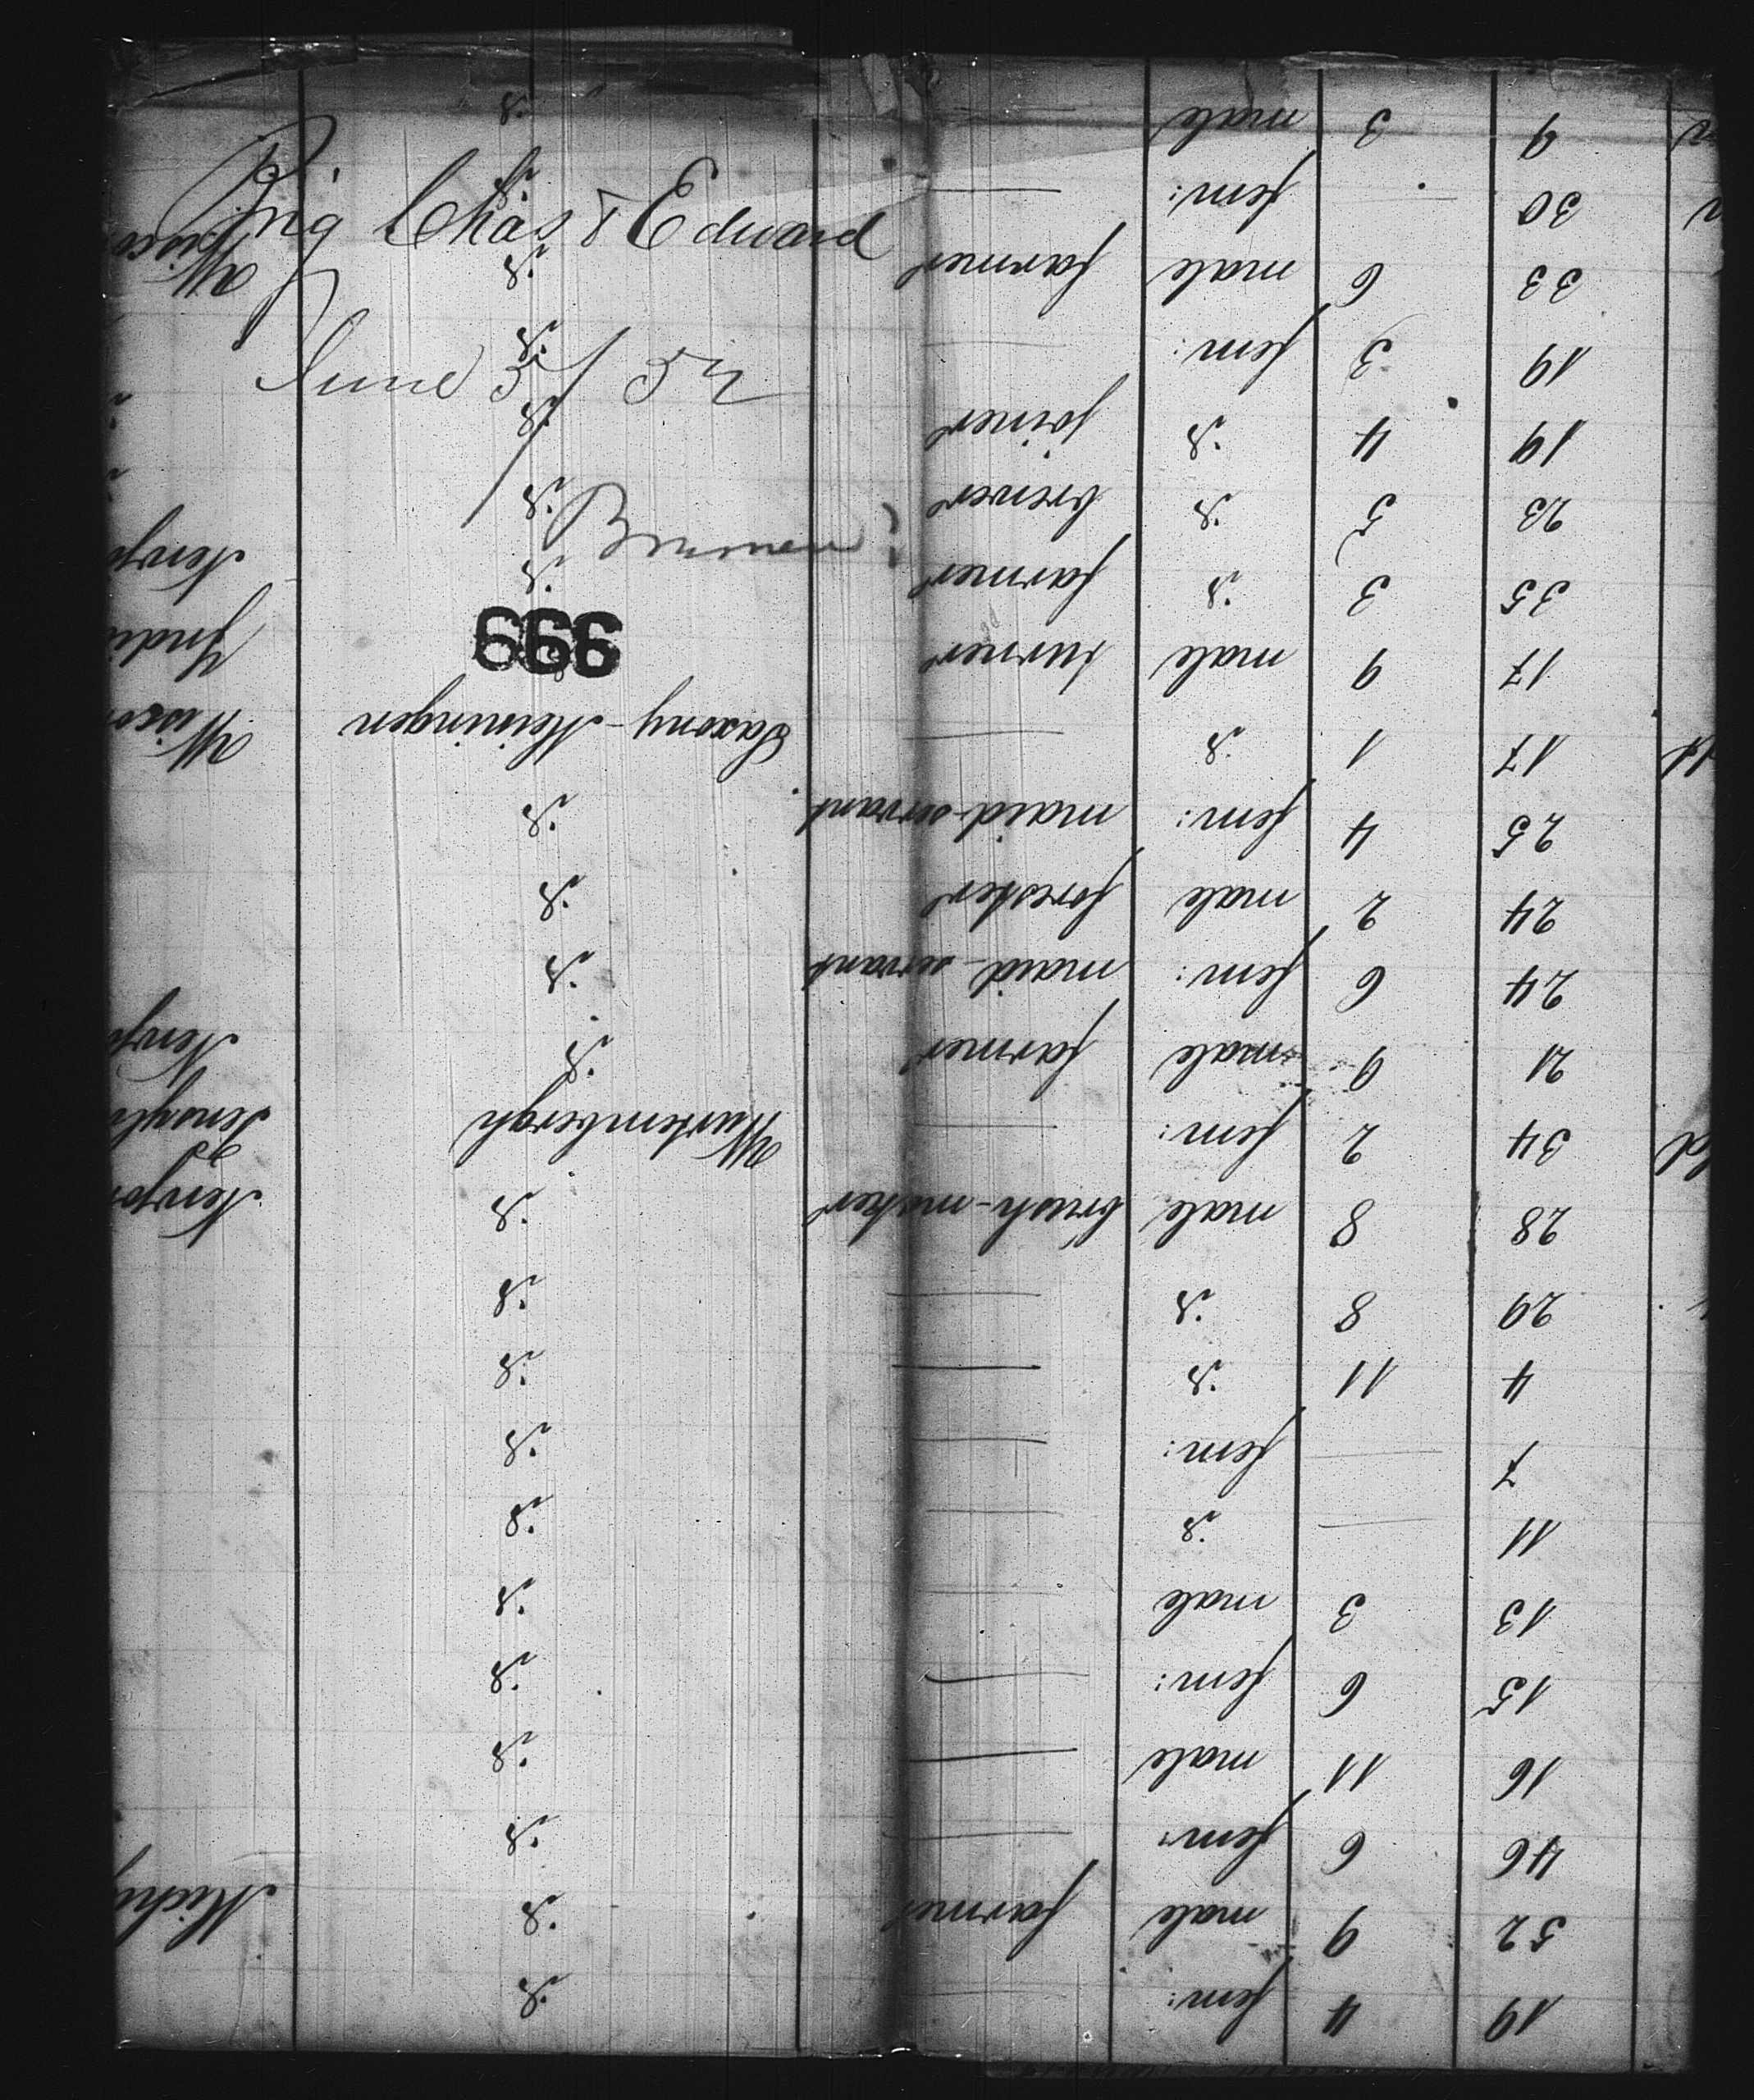 Brig Chas & Edward
June 5/52
Bremen
666
19 4 fem: — d°.
52 9 male farmer d°. Michi
46 6 fem: — d°.
16 11 male — d°.
15 6 fem: — d°.
13 3 male — d°.
11 — d°. — d°.
7 — fem: — d°.
4 11 d°. — d°.
29 8 d°. — d°.
28 8 male brush-maker d°. Newyor
34 2 fem: — Wurtembergh Pensyl
21 9 male farmer d°. Newyo
24 6 fem: maid-servant d°.
24 2 male forester d°.
25 4 fem: maid-servant d°.
17 1 d°. — Saxony-Meiningen Wisco
17 9 male turner d°. Indi
35 3 d°. farmer d°. Newyo
23 5 d°. brewer d°.
19 4 d°. joiner d°.
19 3 fem: — d°.
33 6 male farmer d°. Wisco
30 — fem: — d°.
9 3 male d°.